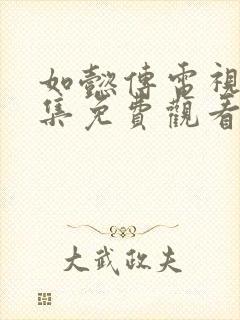 如懿傳電視
集免費觀看
大武政夫